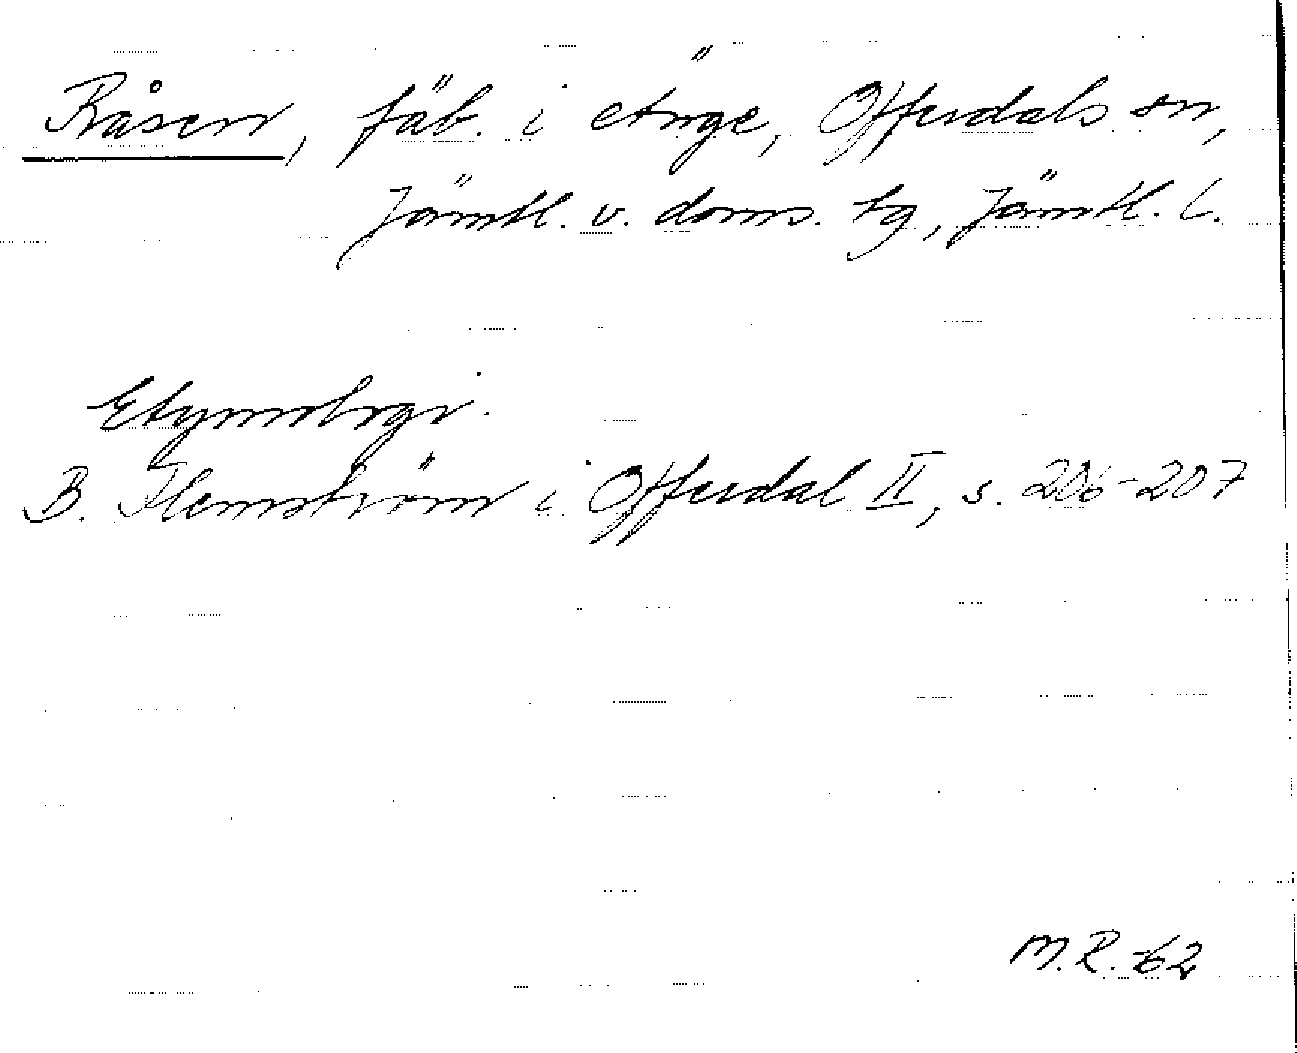 Råsen, fäb. i Änge, Offerdals sn,
Jämtl. v. doms. tg, Jämtl. l.
Etymologi.
B. Flemström i Offerdal II, s. 206-207
M.R. -62